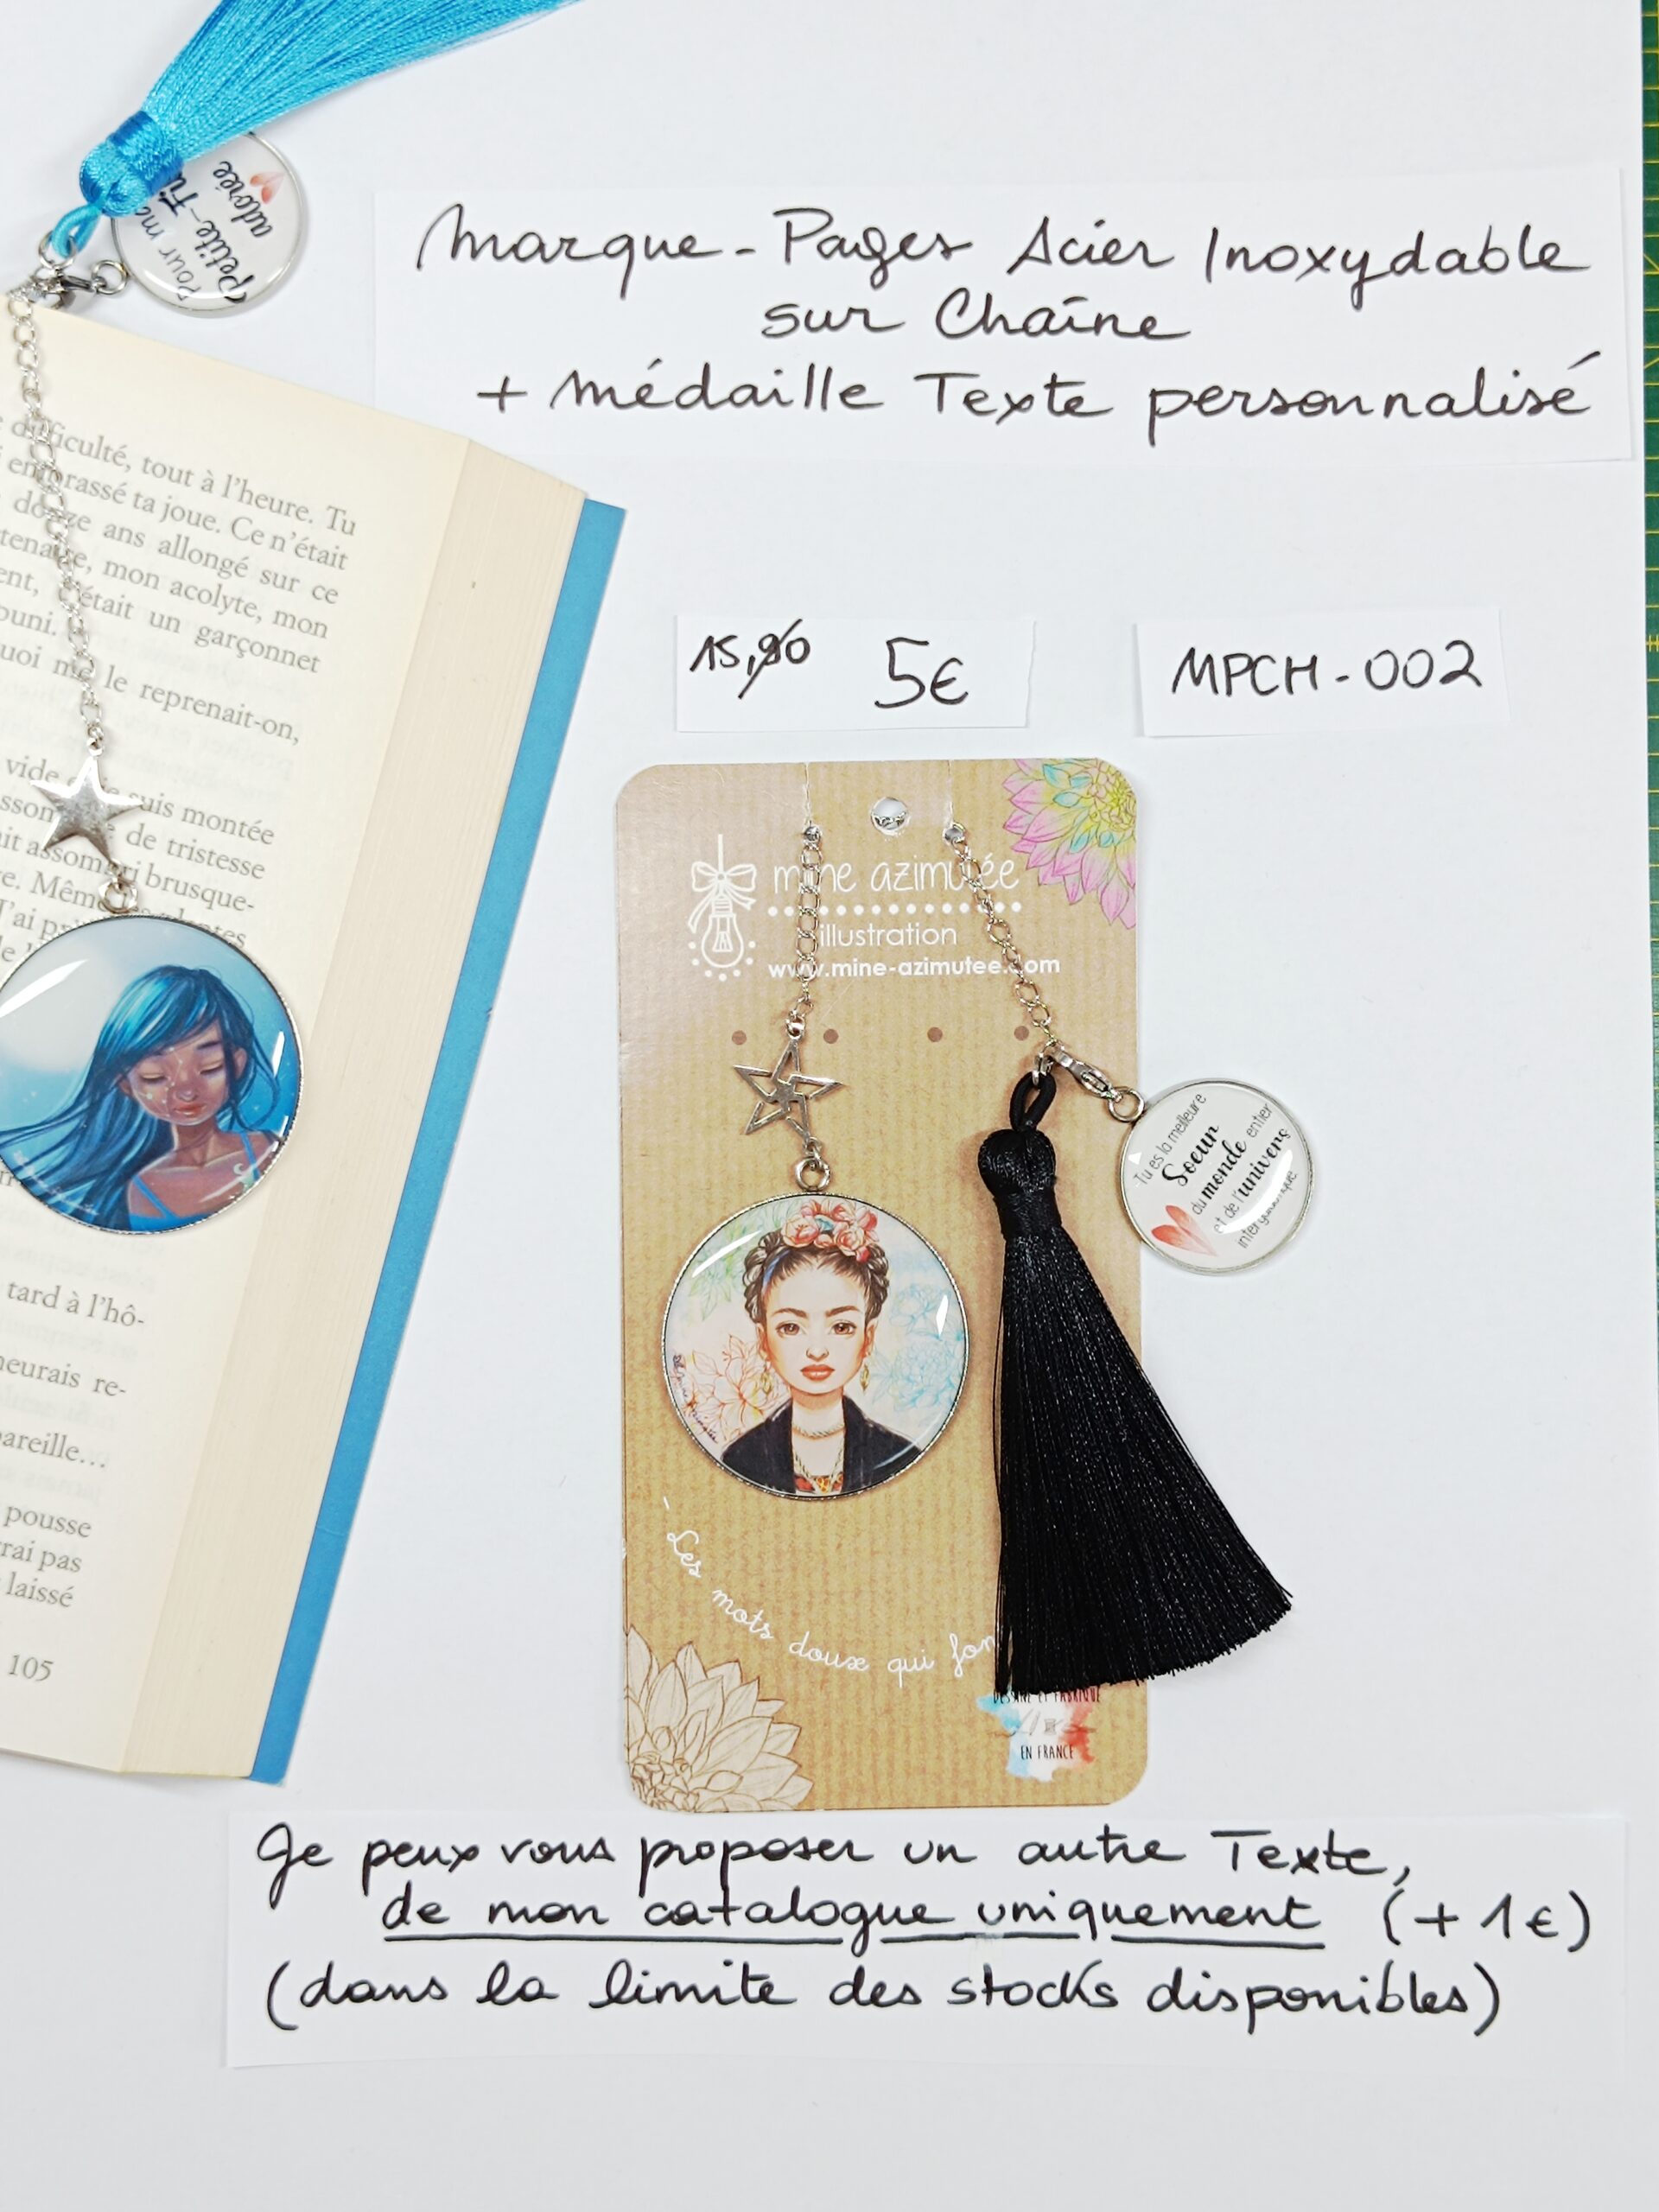 Pour ma
Petite-Fi
adorée
Marque-Pages Acier Inoxydable
sur Chaîne
+ Médaille Texte personnalisé
difficulté, tout à l'heure. Tu
embrassé ta joue. Ce n'était
douze ans allongé sur ce
tenaire, mon acolyte, mon
ent, c'était un garçonnet
puni.
uoi me le reprenait-on,
vide suis montée
de tristesse
ait assombri brusque-
re. Même
J'ai
tard à l'hô-
neurais re-
pareille...
pousse
rrai pas
laissé
105
15,90 5€
MPCH-002
mine azimutée
illustration
www.mine-azimutee.com
Tu es la meilleure
Soeur
du monde entier
et de l'univers
- Les mots doux qui fon
DESSINÉ ET FABRIQUÉ
EN FRANCE
Je peux vous proposer un autre Texte,
de mon catalogue uniquement (+1€)
(dans la limite des stocks disponibles)